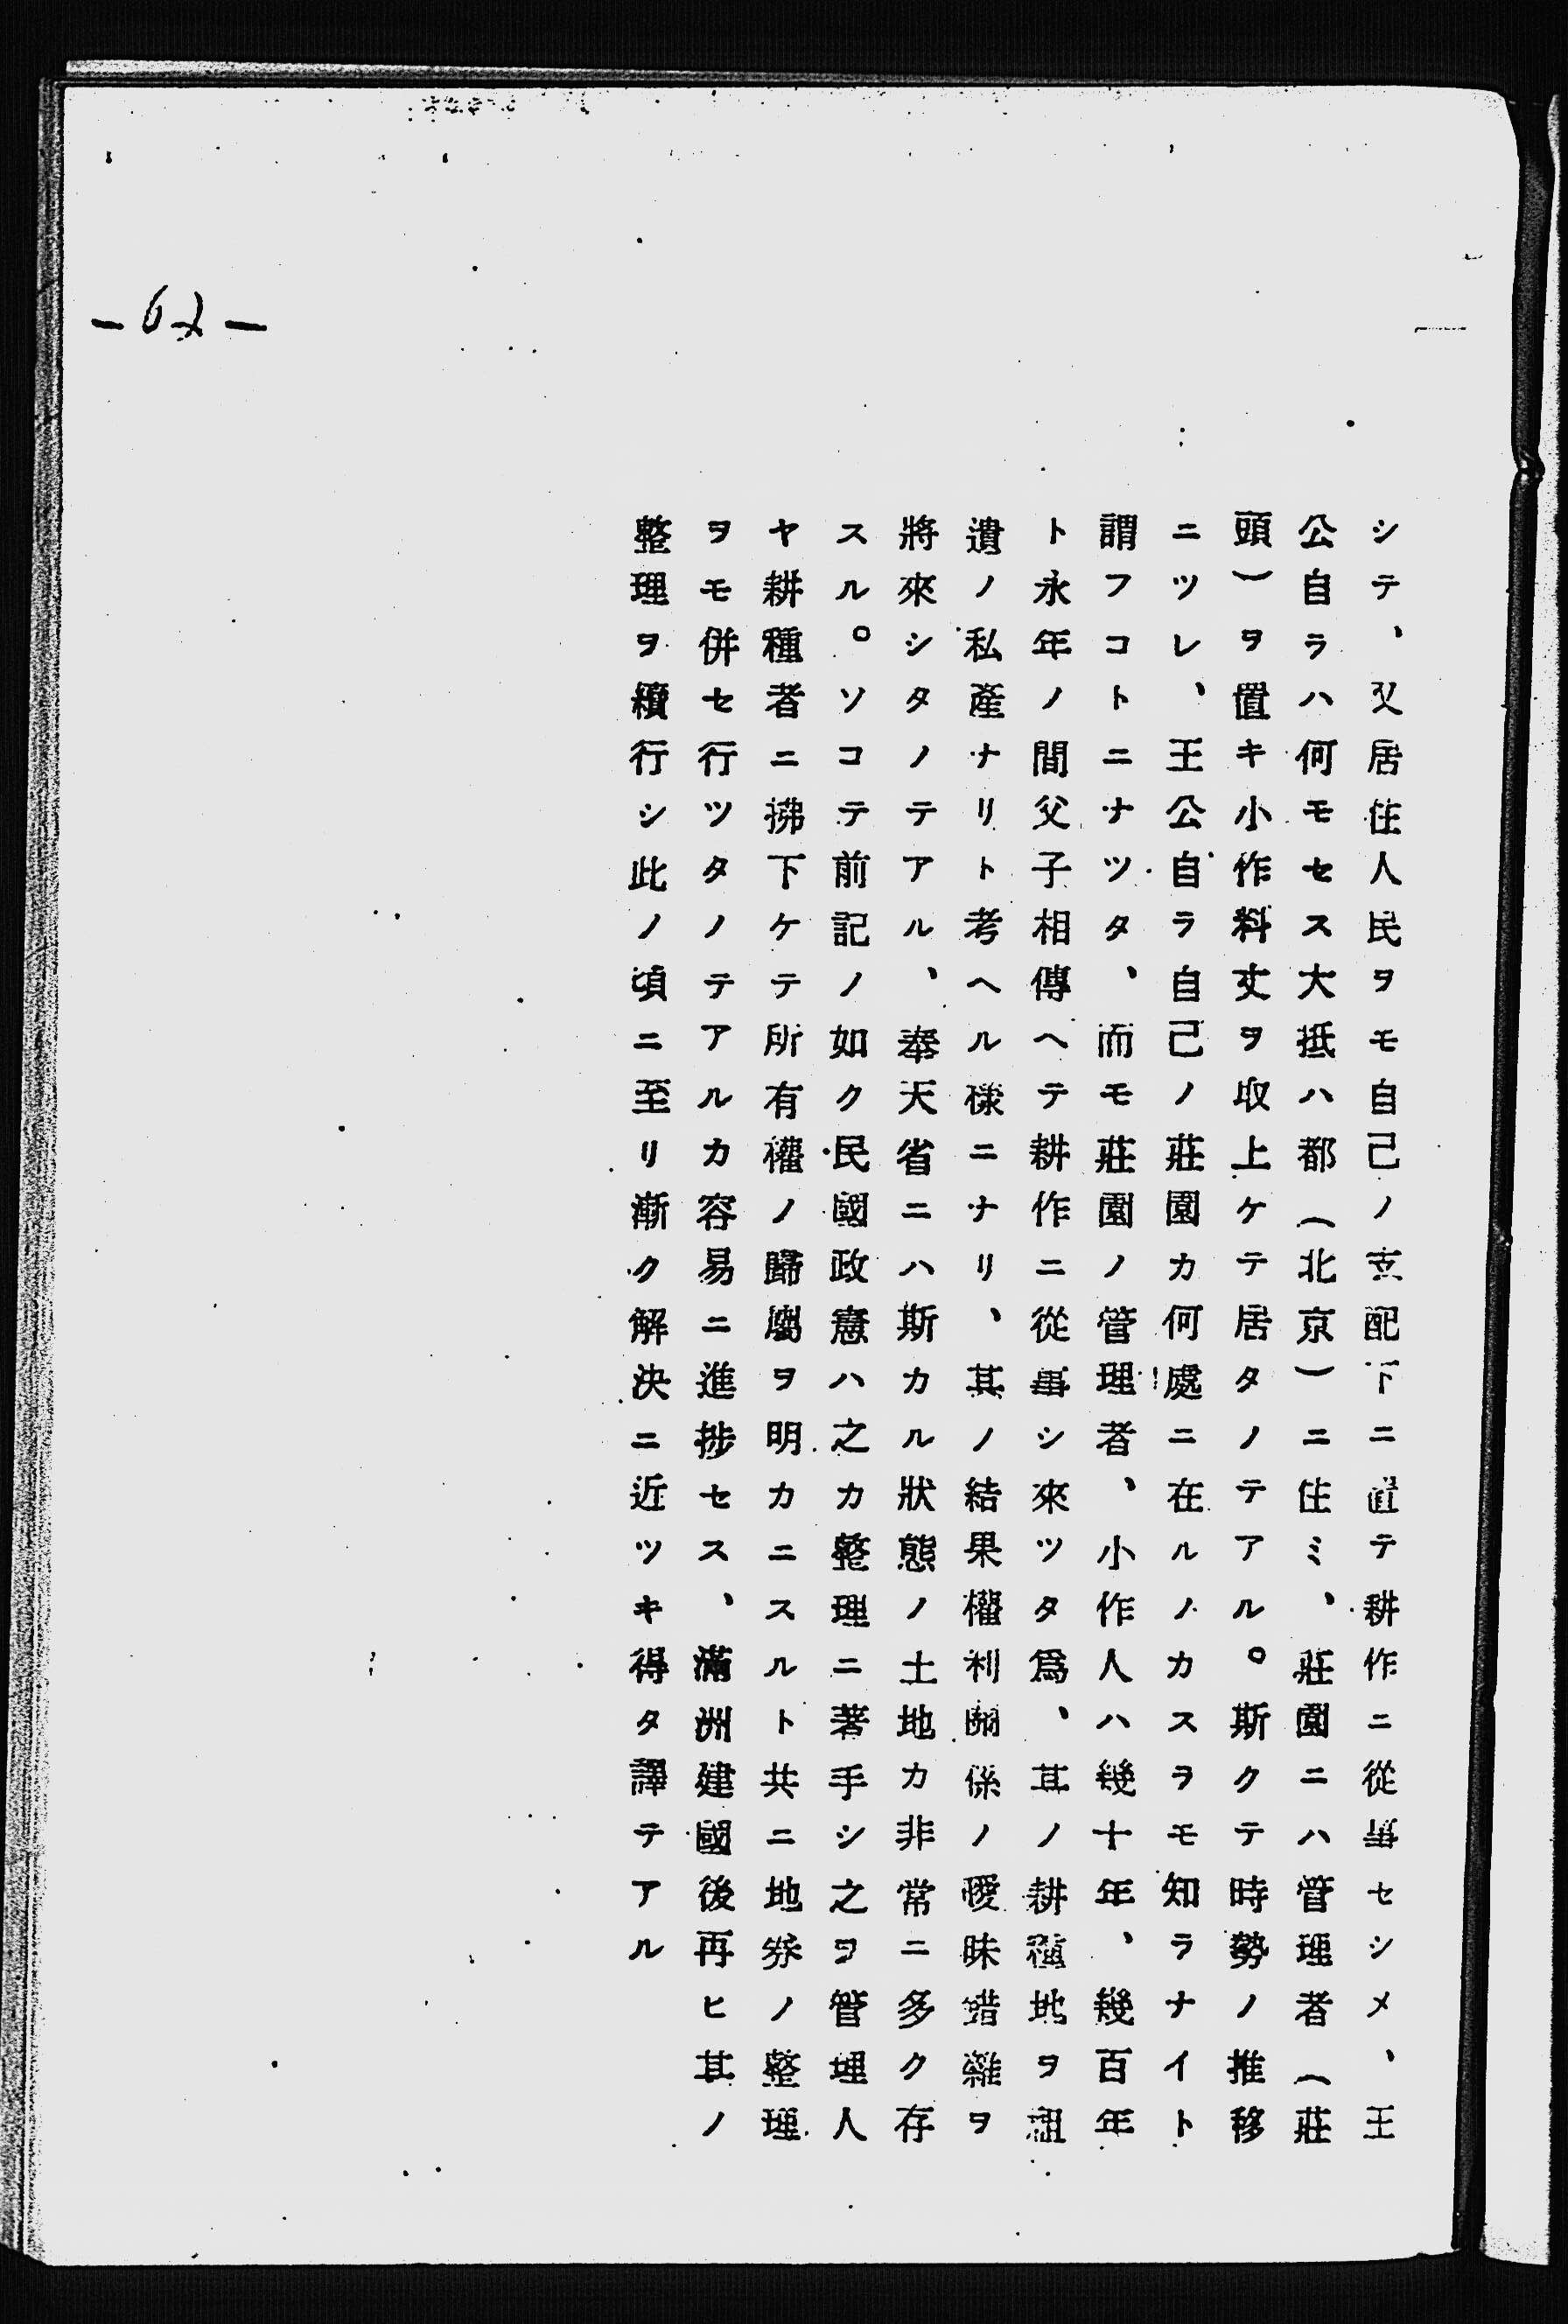 シテ、又居住人民ヲモ自己ノ支配下ニ置テ耕作ニ從事セシメ、王
公自ラハ何モセス大抵ハ都（北京）ニ住ミ、莊園ニハ管理者（莊
頭）ヲ置キ小作料丈ヲ取上ケテ居タノテアル。斯クテ時勢ノ推移
ニツレ、王公自ラ自己ノ莊園カ何處ニ在ルノカスヲモ知ラナイト
謂フコトニナツタ、而モ莊園ノ管理者、小作人ハ幾十年、幾百年
ト永年ノ間父子相傳ヘテ耕作ニ從事シ來ツタ爲、其ノ耕種地ヲ祖
遺ノ私產ナリト考ヘル樣ニナリ、其ノ結果權利關係ノ曖昧錯雜ヲ
將來シタノテアル、奉天省ニハ斯カル狀態ノ土地カ非常ニ多ク存
スル。ソコテ前記ノ如ク民國政憲ハ之カ整理ニ著手シ之ヲ管理人
ヤ耕種者ニ拂下ケテ所有權ノ歸屬ヲ明カニスルト共ニ地劵ノ整理
ヲモ併セ行ツタノテアルカ容易ニ進捗セス、滿洲建國後再ヒ其ノ
整理ヲ續行シ此ノ頃ニ至リ漸ク解決ニ近ツキ得タ譯テアル
-62-